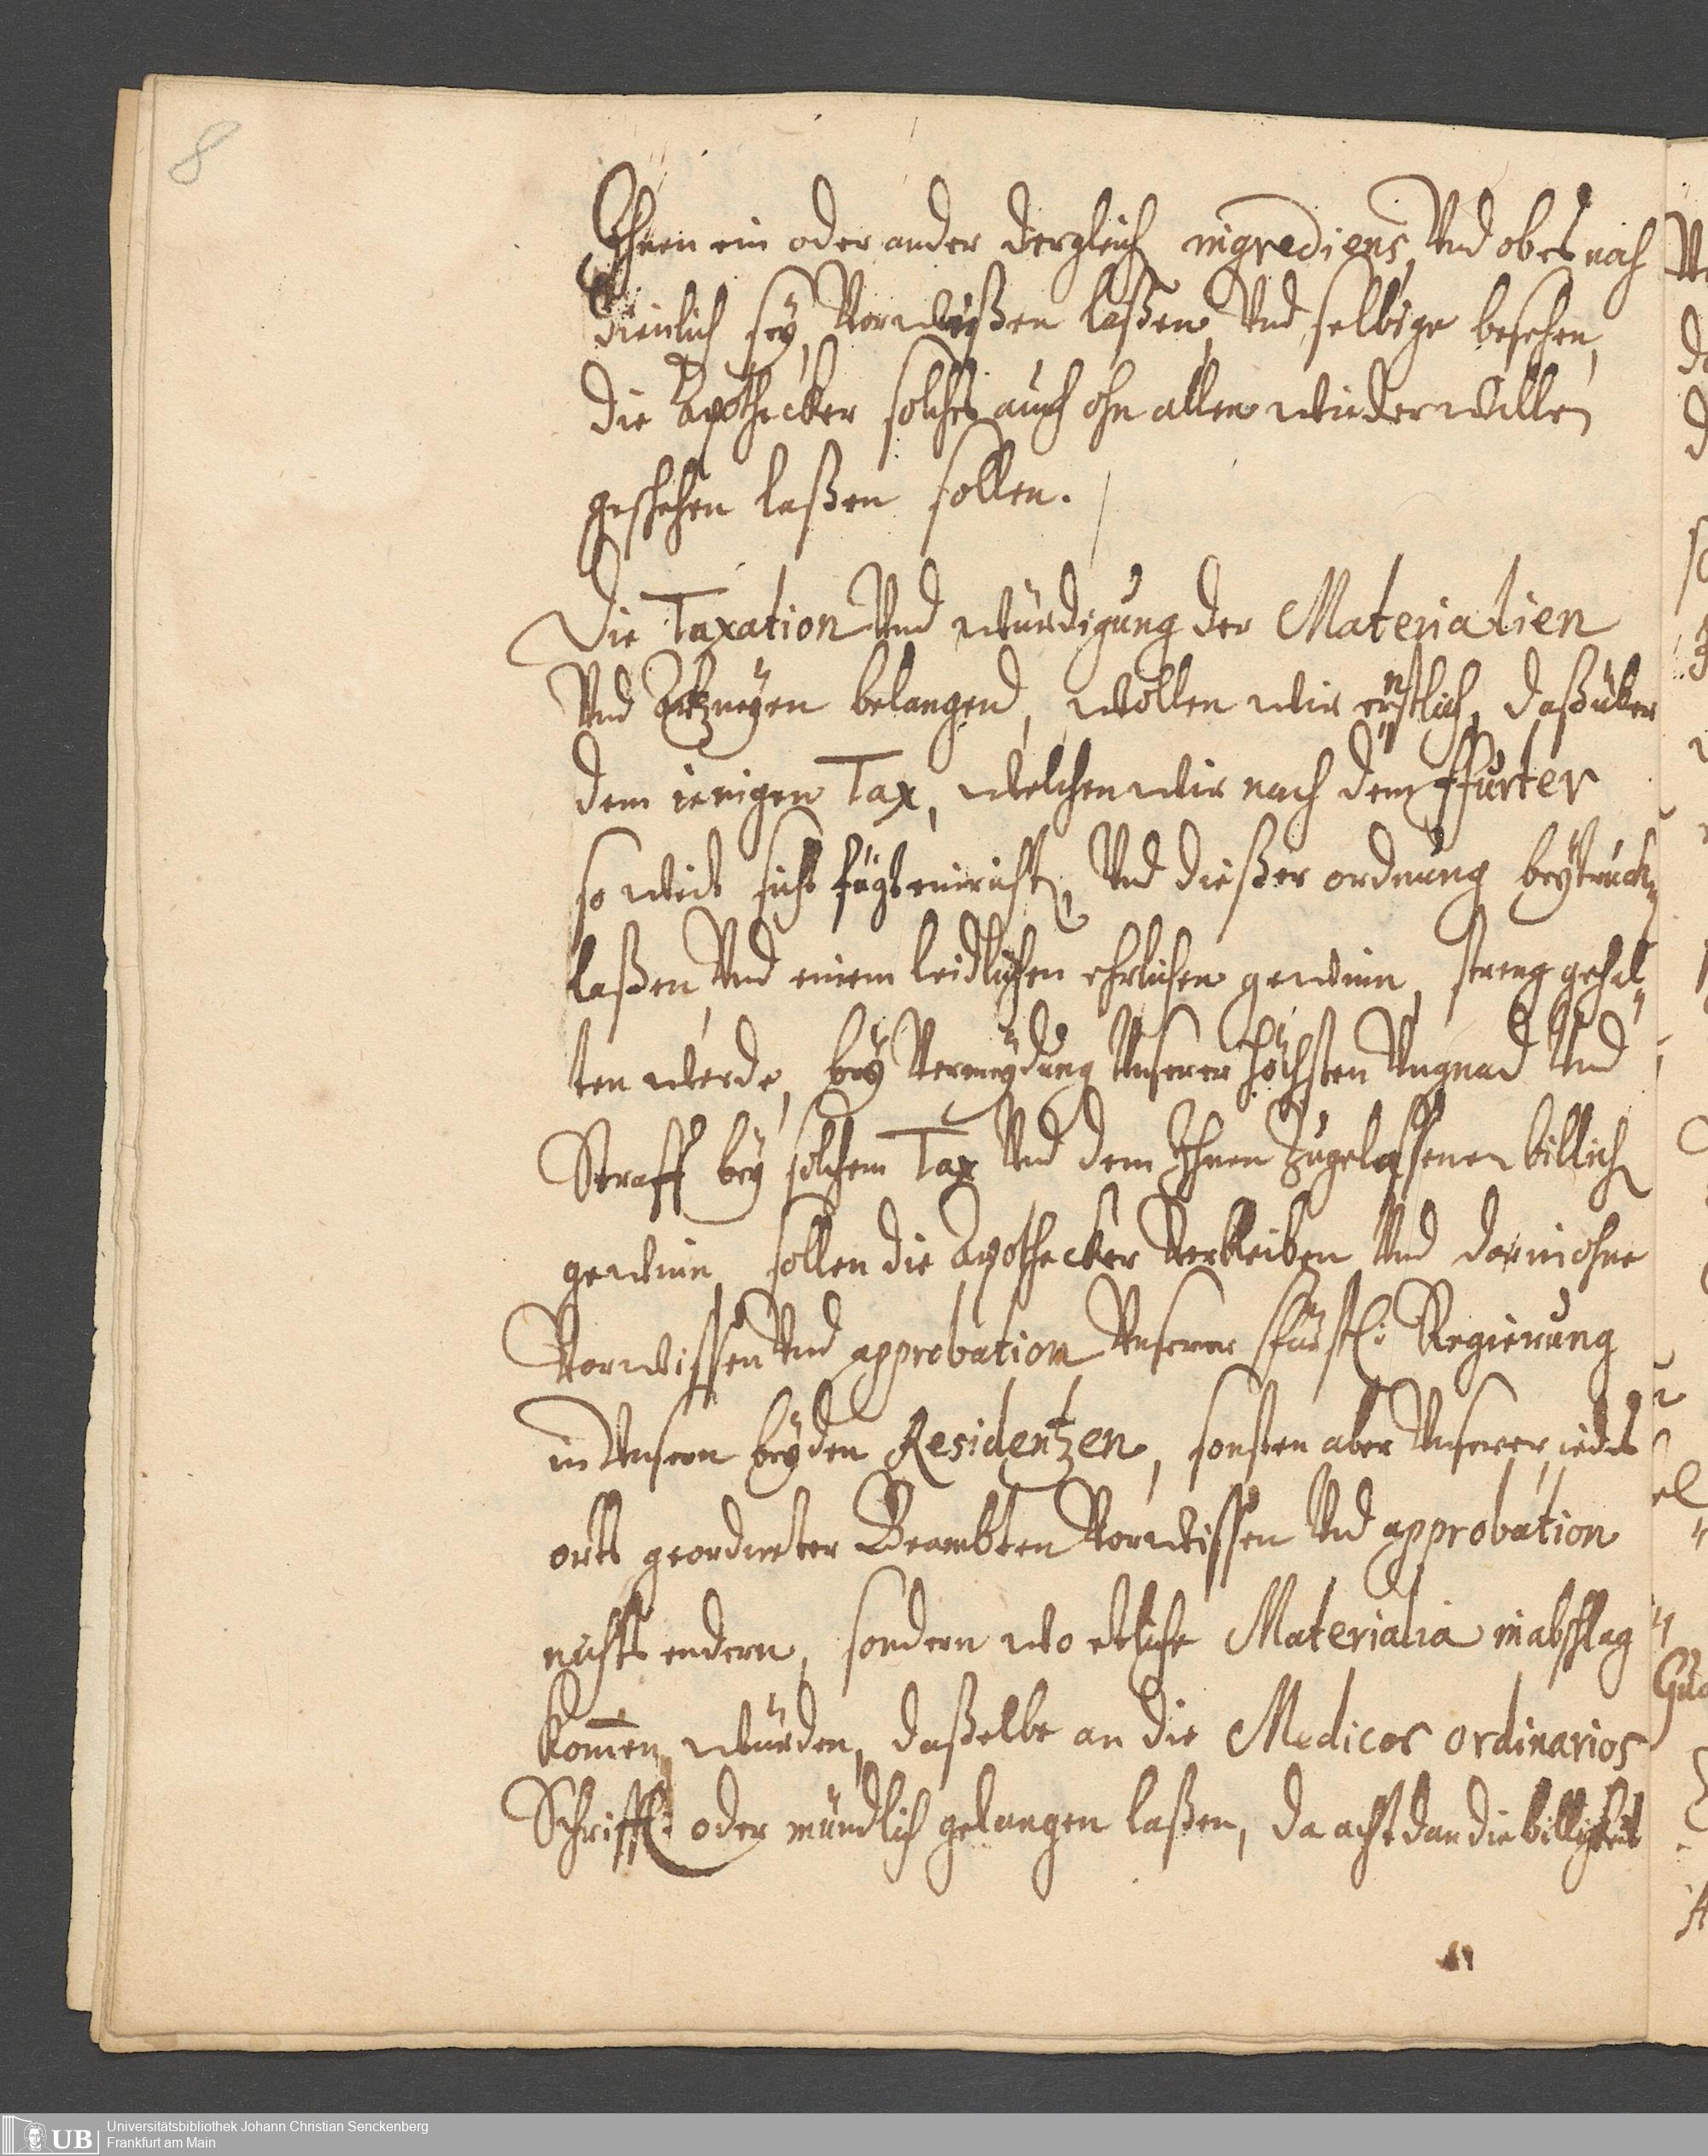 8
Ihnen ein oder ander dergleich ingrediens, Vnd ob es noch
dienlich sey, Vorweißen laßen, Vnd selbige besehen,
die Apothecker solches auch ohn allen wiederwillen
geschehen laßen sollen.
Die Taxation Vnd würdigung der Materialien
Vnd Artzneyen belangend, wollen wir ernstlich, daß über
dem ienigen Tax, welchen wir nach dem ffurter
so weit sichs fügt einricht, Vnd dießer ordnung beytruck„
laßen, Vnd einem leidlichen ehrlichen gewinn, streng gehal„
ten werde, bey Vermeydung Vnserer höchsten Vngnad Vnd
Straff bey solchem Tax Vnd dem Ihnen Zugelassenen billich
gewinn sollen die Apothecker Verbleiben Vnd darin ohne
Vorwissen Vnd approbation Vnserer fürstl: Regierung
in Vnsern beyden Residentzen, sonsten aber Vnserer iedes
orts geordneter Beambten Vorwissen Vnd approbation
nichts endern, sondern wo etliche Materialia in abschlag
kom̄en würden, daßelbe an die Medicos ordinarios
Schrifftl: oder mündlich gelangen laßen, da acht dan die billigkeit
UB Universitätsbibliothek Johann Christian Senckenberg
Frankfurt am Main